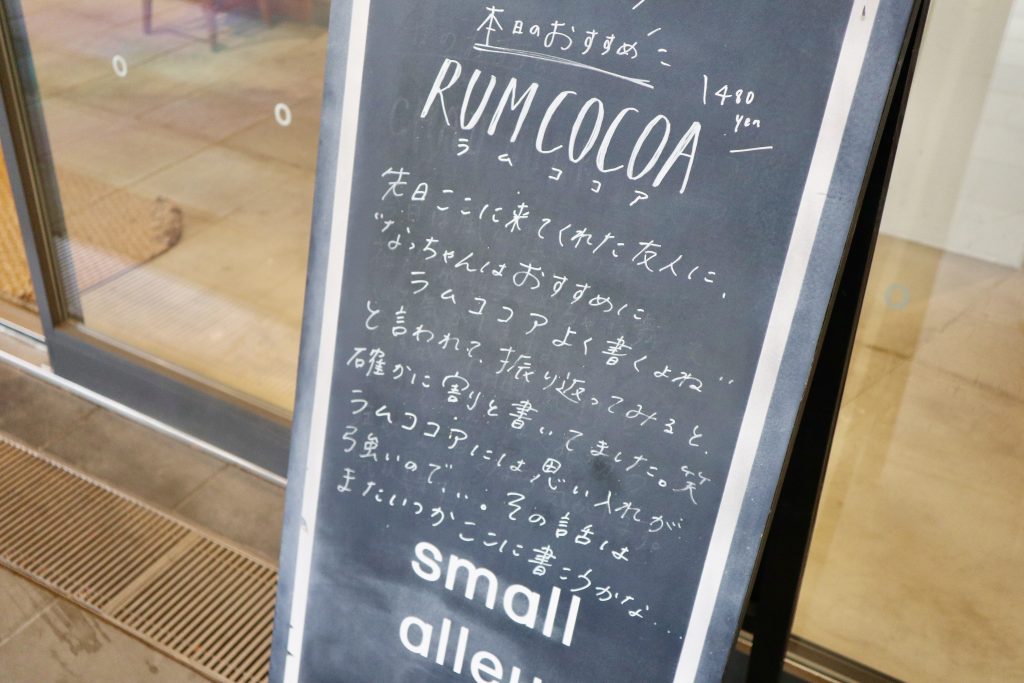 本日のおすすめ
RUM COCOA
1480
yen
ラムココア
先日ここに来てくれた友人に、
"なっちゃんはおすすめに
ラムココアよく書くよね"
と言われて、振り返ってみると、
確かに割と書いてました。笑
ラムココアには思い入れが
強いので、...。その話は
またいつかここに書こうかな...
small
alley